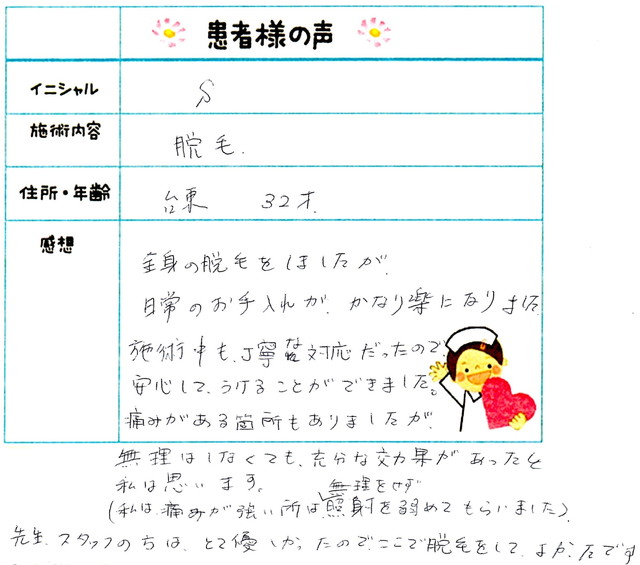 患者様の声
イニシャル S
施術内容 脱毛.
住所・年齢 台東 32才.
感想
全身の脱毛をしましたが、
日常のお手入れが、かなり楽になりました
施術中も、丁寧な対応だったので、
安心して、うけることができました。
痛みがある箇所もありましたが、
無理はしなくても、充分な効果があったと
私は思います。
無理をせず
(私は、痛みが強い所は照射を弱めてもらいました).
先生、スタッフの方は、とて優しかったので、ここで脱毛をして、よかったです